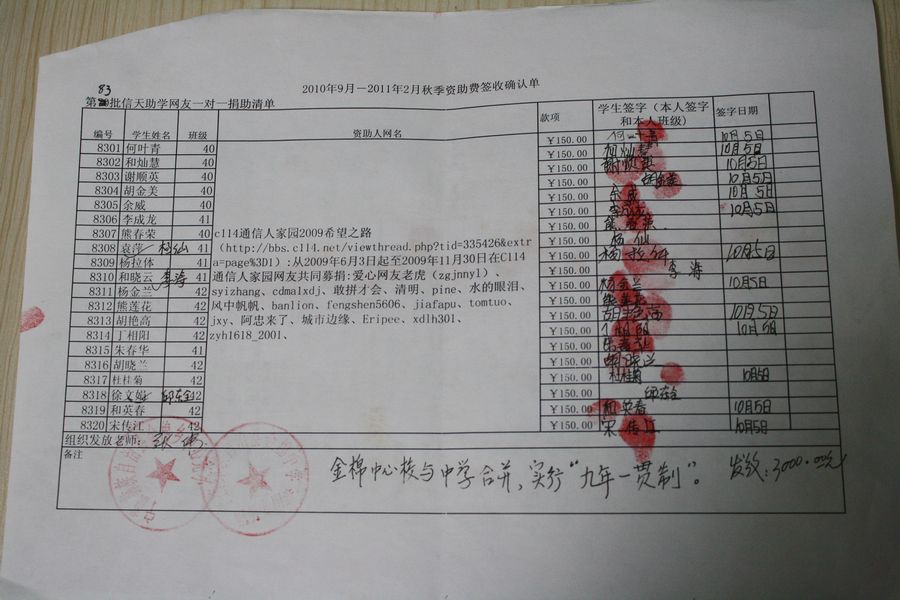 2010年9月-2011年2月秋季资助费签收确认单
83
第 批信天助学网友一对一捐助清单
编号 学生姓名 班级 资助人网名 款项 学生签字（本人签字和本人班级） 签字日期
8301 何叶青 40 ￥150.00 10月5日
8302 和灿慧 40 ￥150.00 和灿慧 10月5日
8303 谢顺英 40 ￥150.00 谢顺英 10月5日
8304 胡金美 40 ￥150.00 胡金美 10月5日
8305 余威 40 ￥150.00 余威
8306 李成龙 41 ￥150.00 李成龙 10月5日
8307 熊春荣 40 ￥150.00 熊春荣
8308 袁萍 杨仙 41 ￥150.00 杨仙
8309 杨拉体 41 ￥150.00 杨拉体 10月5日
8310 和晓云 李涛 41 ￥150.00 李涛
8311 杨金兰 42 ￥150.00 杨金兰 10月5日
8312 熊莲花 42 ￥150.00
8313 胡艳高 42 ￥150.00 胡艳高 10月5日
8314 丁相阳 42 ￥150.00 丁相阳 10月5日
8315 朱春华 41 ￥150.00
8316 胡晓兰 42 ￥150.00 胡晓兰
8317 杜桂菊 42 ￥150.00 杜桂菊 10月5日
8318 徐文娅 邱在全 42 ￥150.00 邱在全
8319 和英春 42 ￥150.00 和英春 10月5日
8320 宋传江 42 ￥150.00 宋传江 10月5日
c114通信人家园2009希望之路
（http://bbs.c114.net/viewthread.php?tid=335426&extr
a=page%3D1）:从2009年6月3日起至2009年11月30日在C114
通信人家园网友共同募捐:爱心网友老虎（zgjnnyl）、
syizhang、cdmalxdj、敢拼才会、清明、pine、水的眼泪、
风中帆帆、banlion、fengshen5606、jiafapu、tomtuo、
jxy、阿忠来了、城市边缘、Eripee、xdlh301、
zyh1618_2001、
组织发放老师:
备注
金棉中心校与中学合并，实行“九年一贯制”。 发款:3000.00元